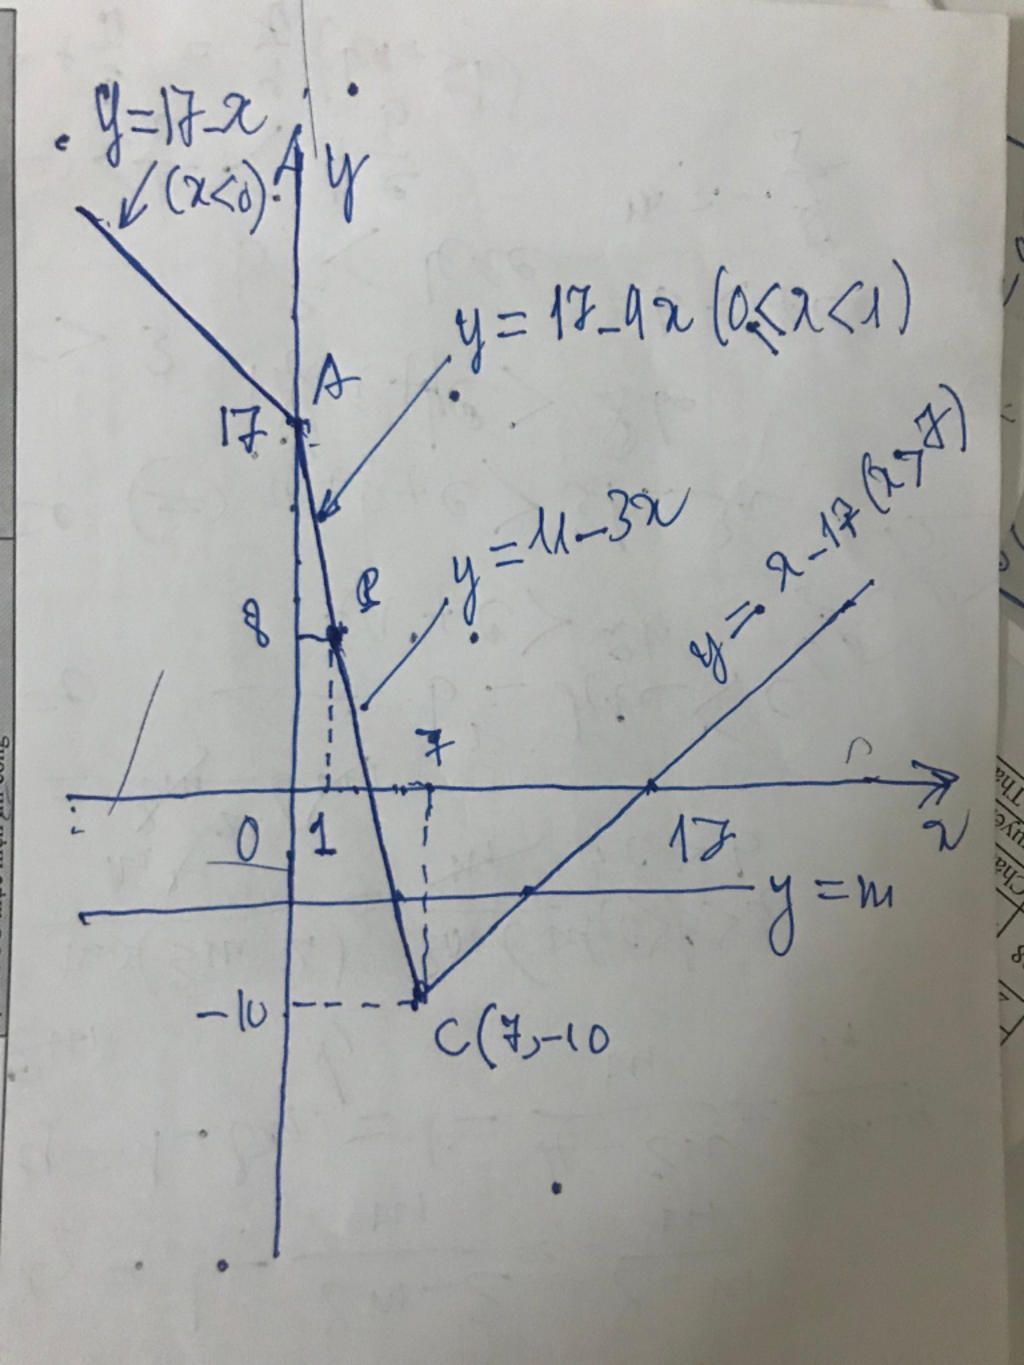 y=17-x
(x<0)
y
y = 17-9x (0<x<1)
A
17
y = x-17 (x>7)
y = 11-3x
B
8
7
0
1
17
x
y = m
-10
C(7,-10